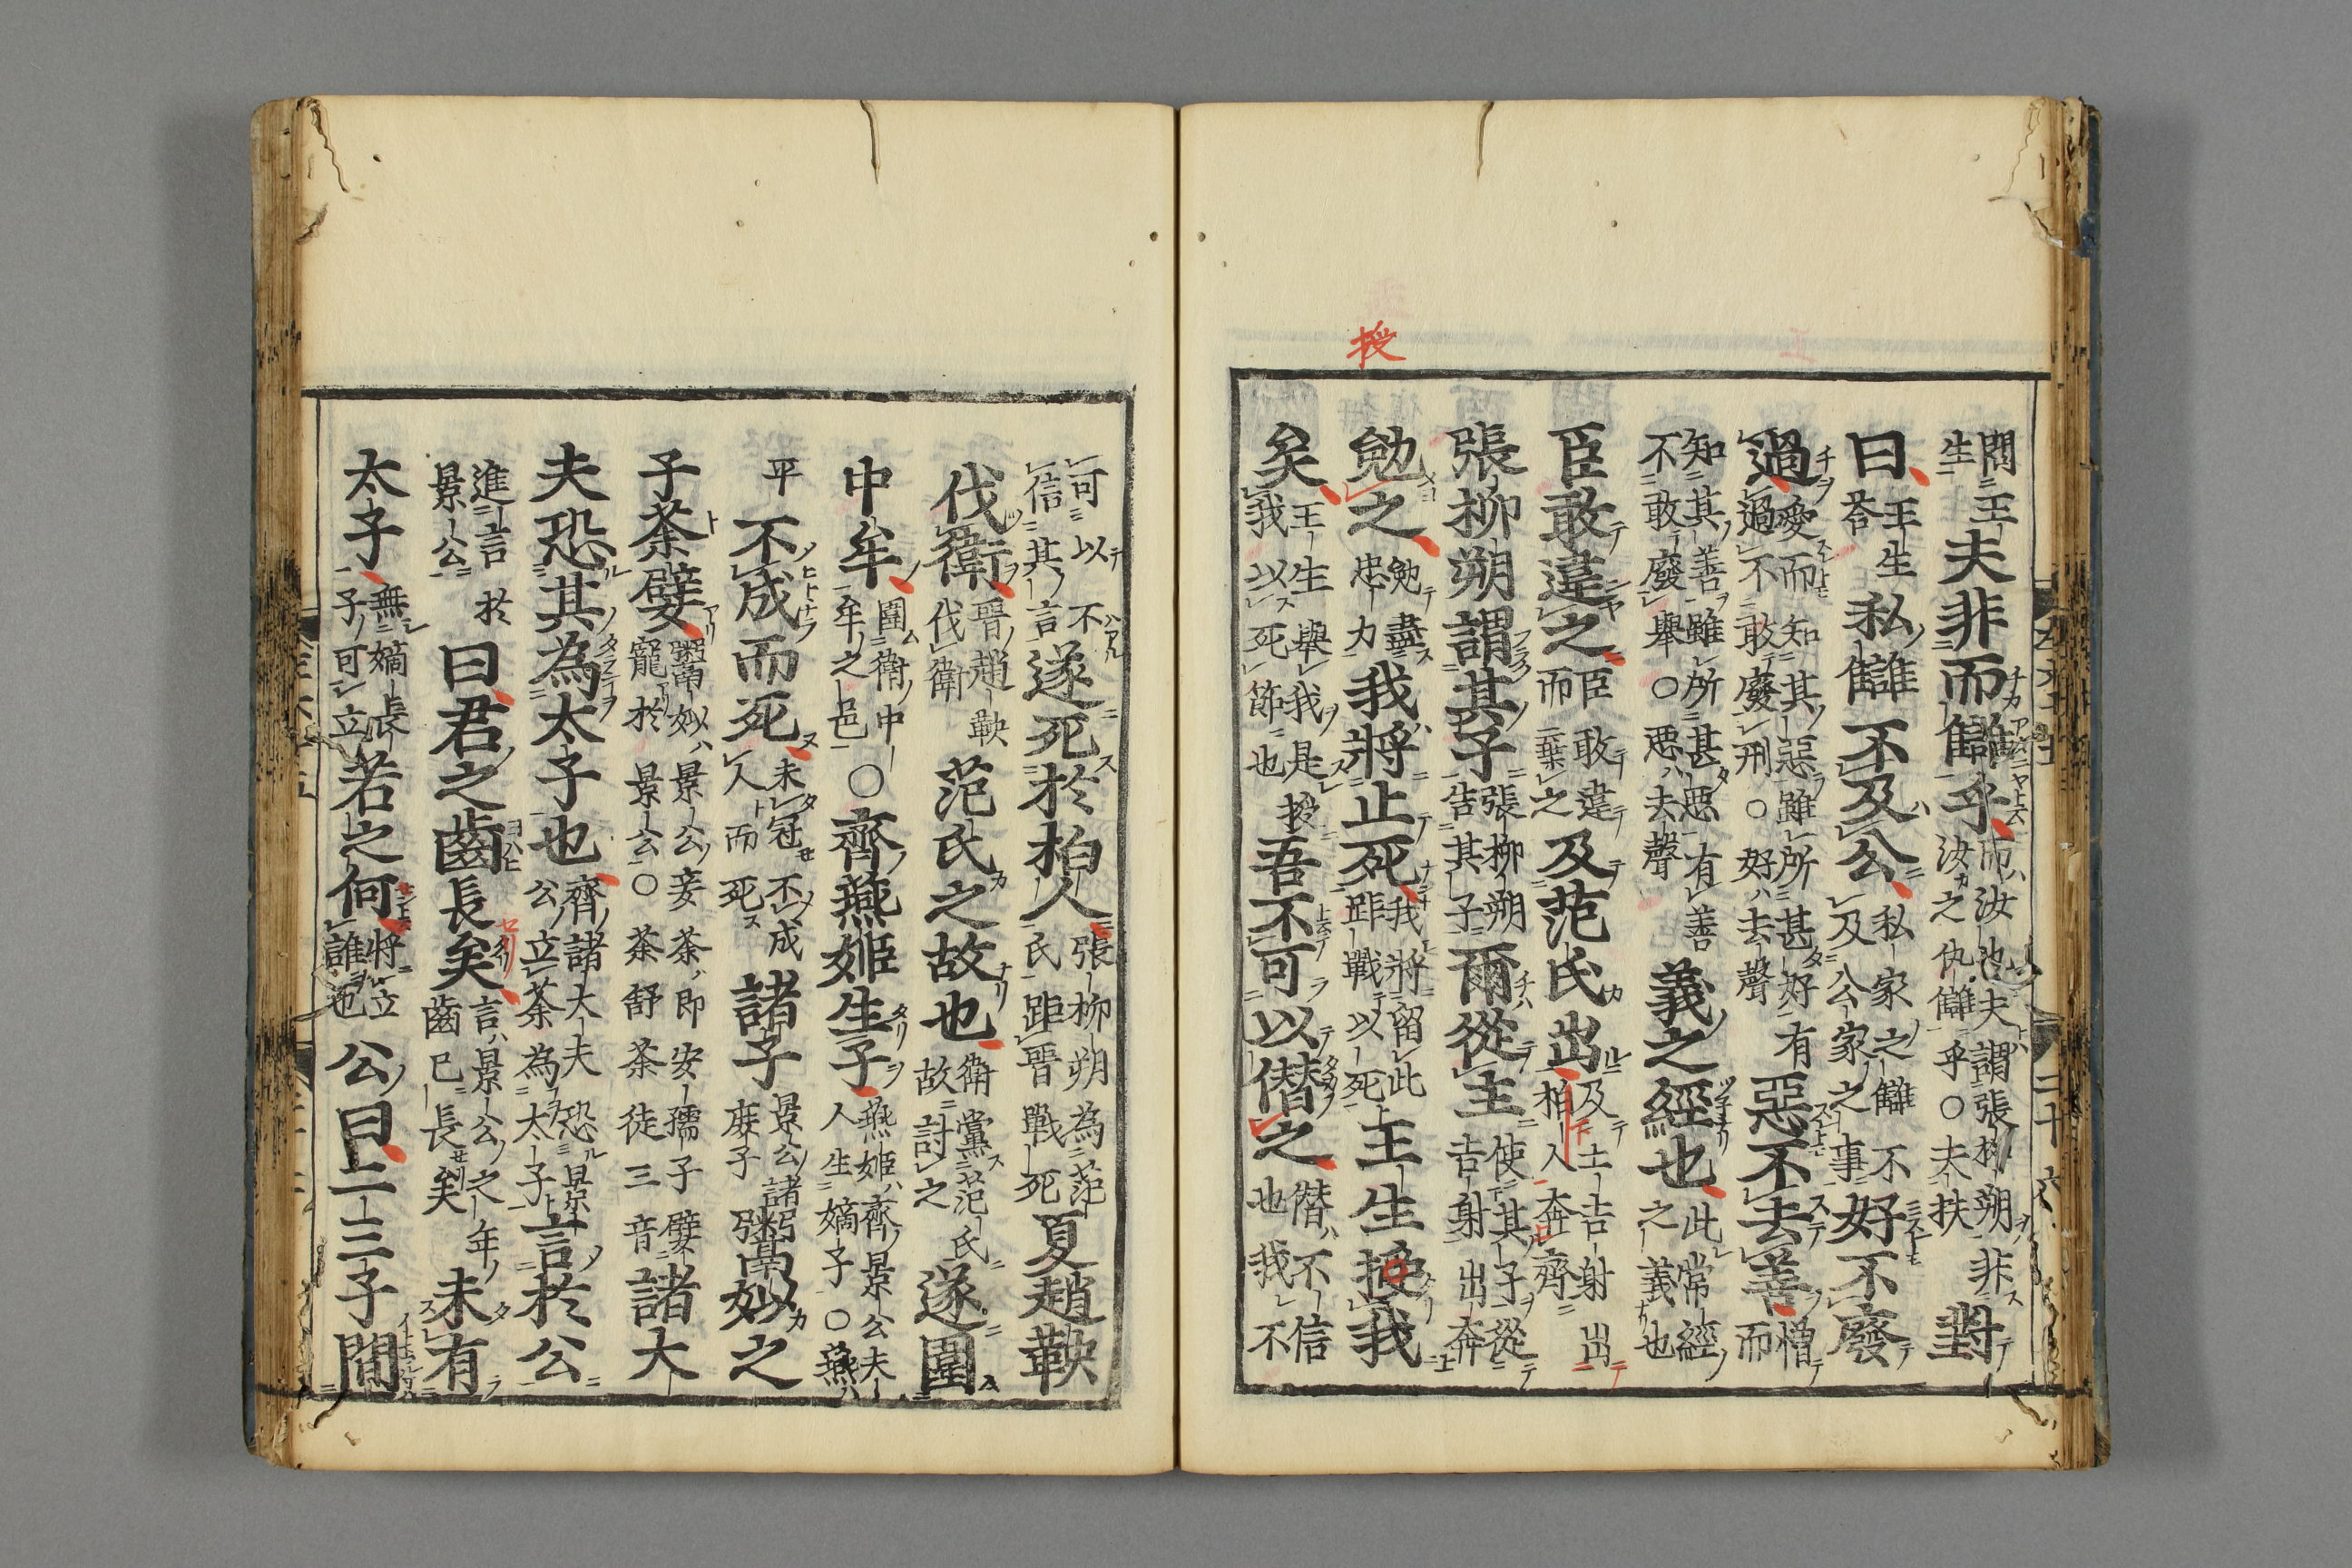 授
問王生夫非而讎乎而汝也夫謂張柳朔非汝之仇讎乎○夫扶對
曰荅王生私讎不及公私家之讎不及公家之事好不廢
過愛而知其惡雖所甚好有過不敢廢刑○好去聲惡不去善憎而
知其善雖所甚惡有善不敢廢舉○惡去聲義之經也此常經之義也
臣敢違之臣敢違而棄之及范氏出及士吉射出柏人奔齊
張柳朔謂其子張柳朔告其子爾從主使其子從吉射出奔
勉之勉盡忠力我將止死我將留此距戰以死王生授我
矣王生舉我是授我以死節也吾不可以僭之僭不信也我不
可以不信其言遂死於柏人張柳朔為范氏距晉戰死夏趙鞅
伐衛晉趙鞅伐衛范氏之故也衛黨范氏故討之遂圍
中牟圍衛中牟之邑○齊燕姬生子燕姬齊景公夫人生嫡子○燕
平不成而死未冠不成人而死諸子景公諸庶子鬻姒之
子荼嬖鬻姒景公妾荼即安孺子嬖寵於景公○荼舒荼徒三音諸大
夫恐其為太子也齊諸大夫恐景公立荼為太子言於公
進言於景公曰君之齒長矣言景公之年齒已長矣未有
太子無嫡長子可立若之何將立誰也公曰二三子間